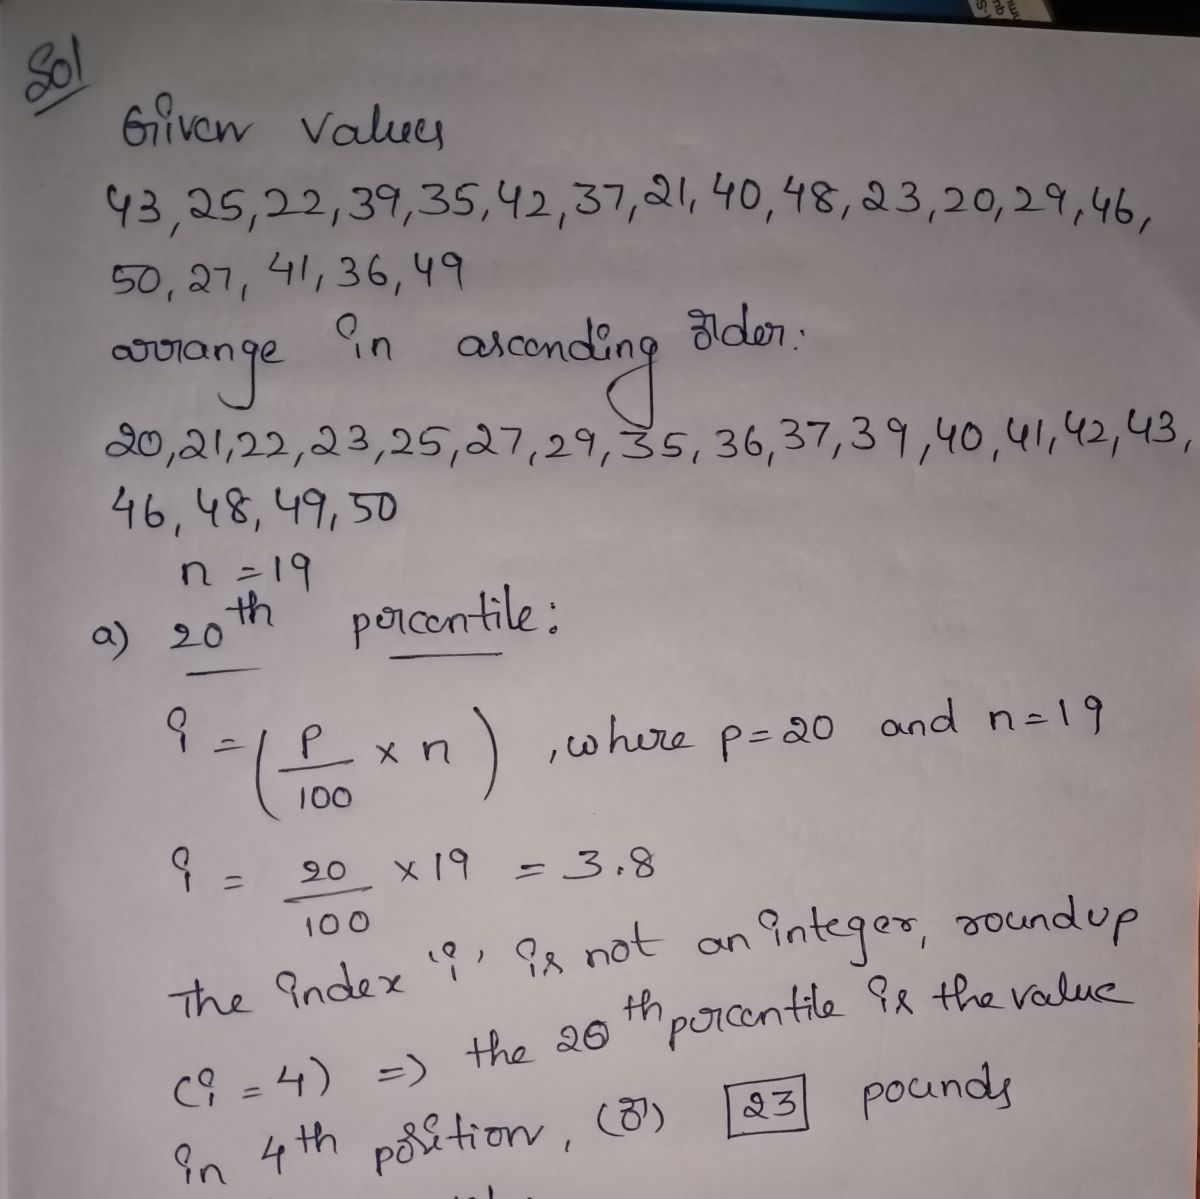 Sol
Given values
43,25,22,39,35,42,37,21,40,48,23,20,29,46,
50,27,41,36,49
arrange in ascending order.
20,21,22,23,25,27,29,35,36,37,39,40,41,42,43,
46,48,49,50
n =19
a) 20th percentile:
i = (P/100 × n), where p=20 and n=19
i = 20/100 ×19 = 3.8
The index 'i' is not an integer, round up
(i = 4) => the 20th percentile is the value
in 4th position, (or) 23 pounds